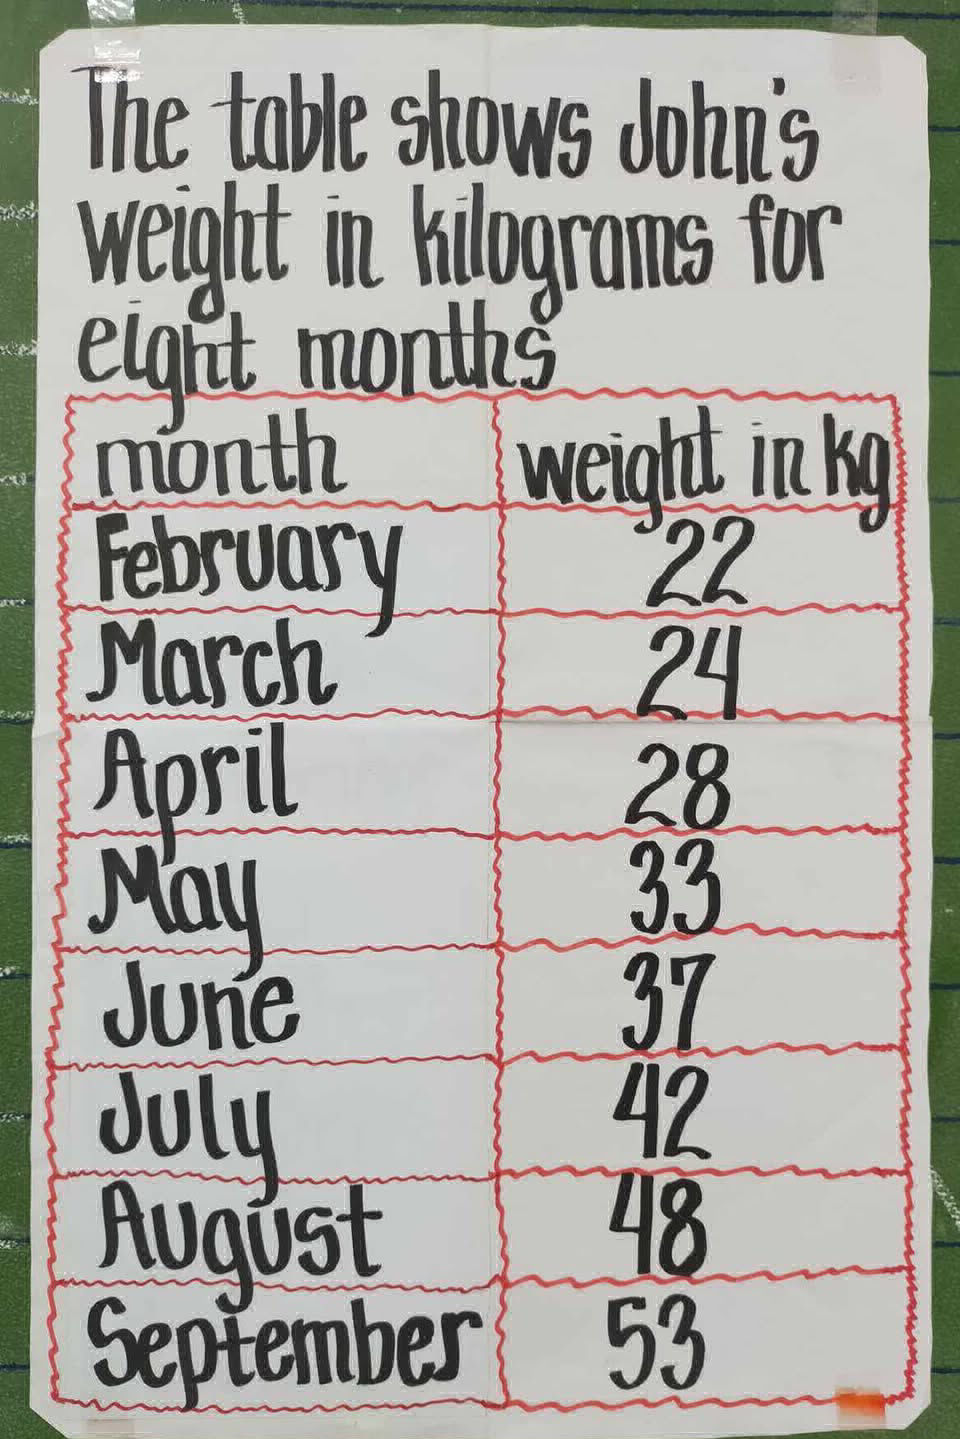 The table shows John's
weight in kilograms for
eight months
month weight in kg
February 22
March 24
April 28
May 33
June 37
July 42
August 48
September 53